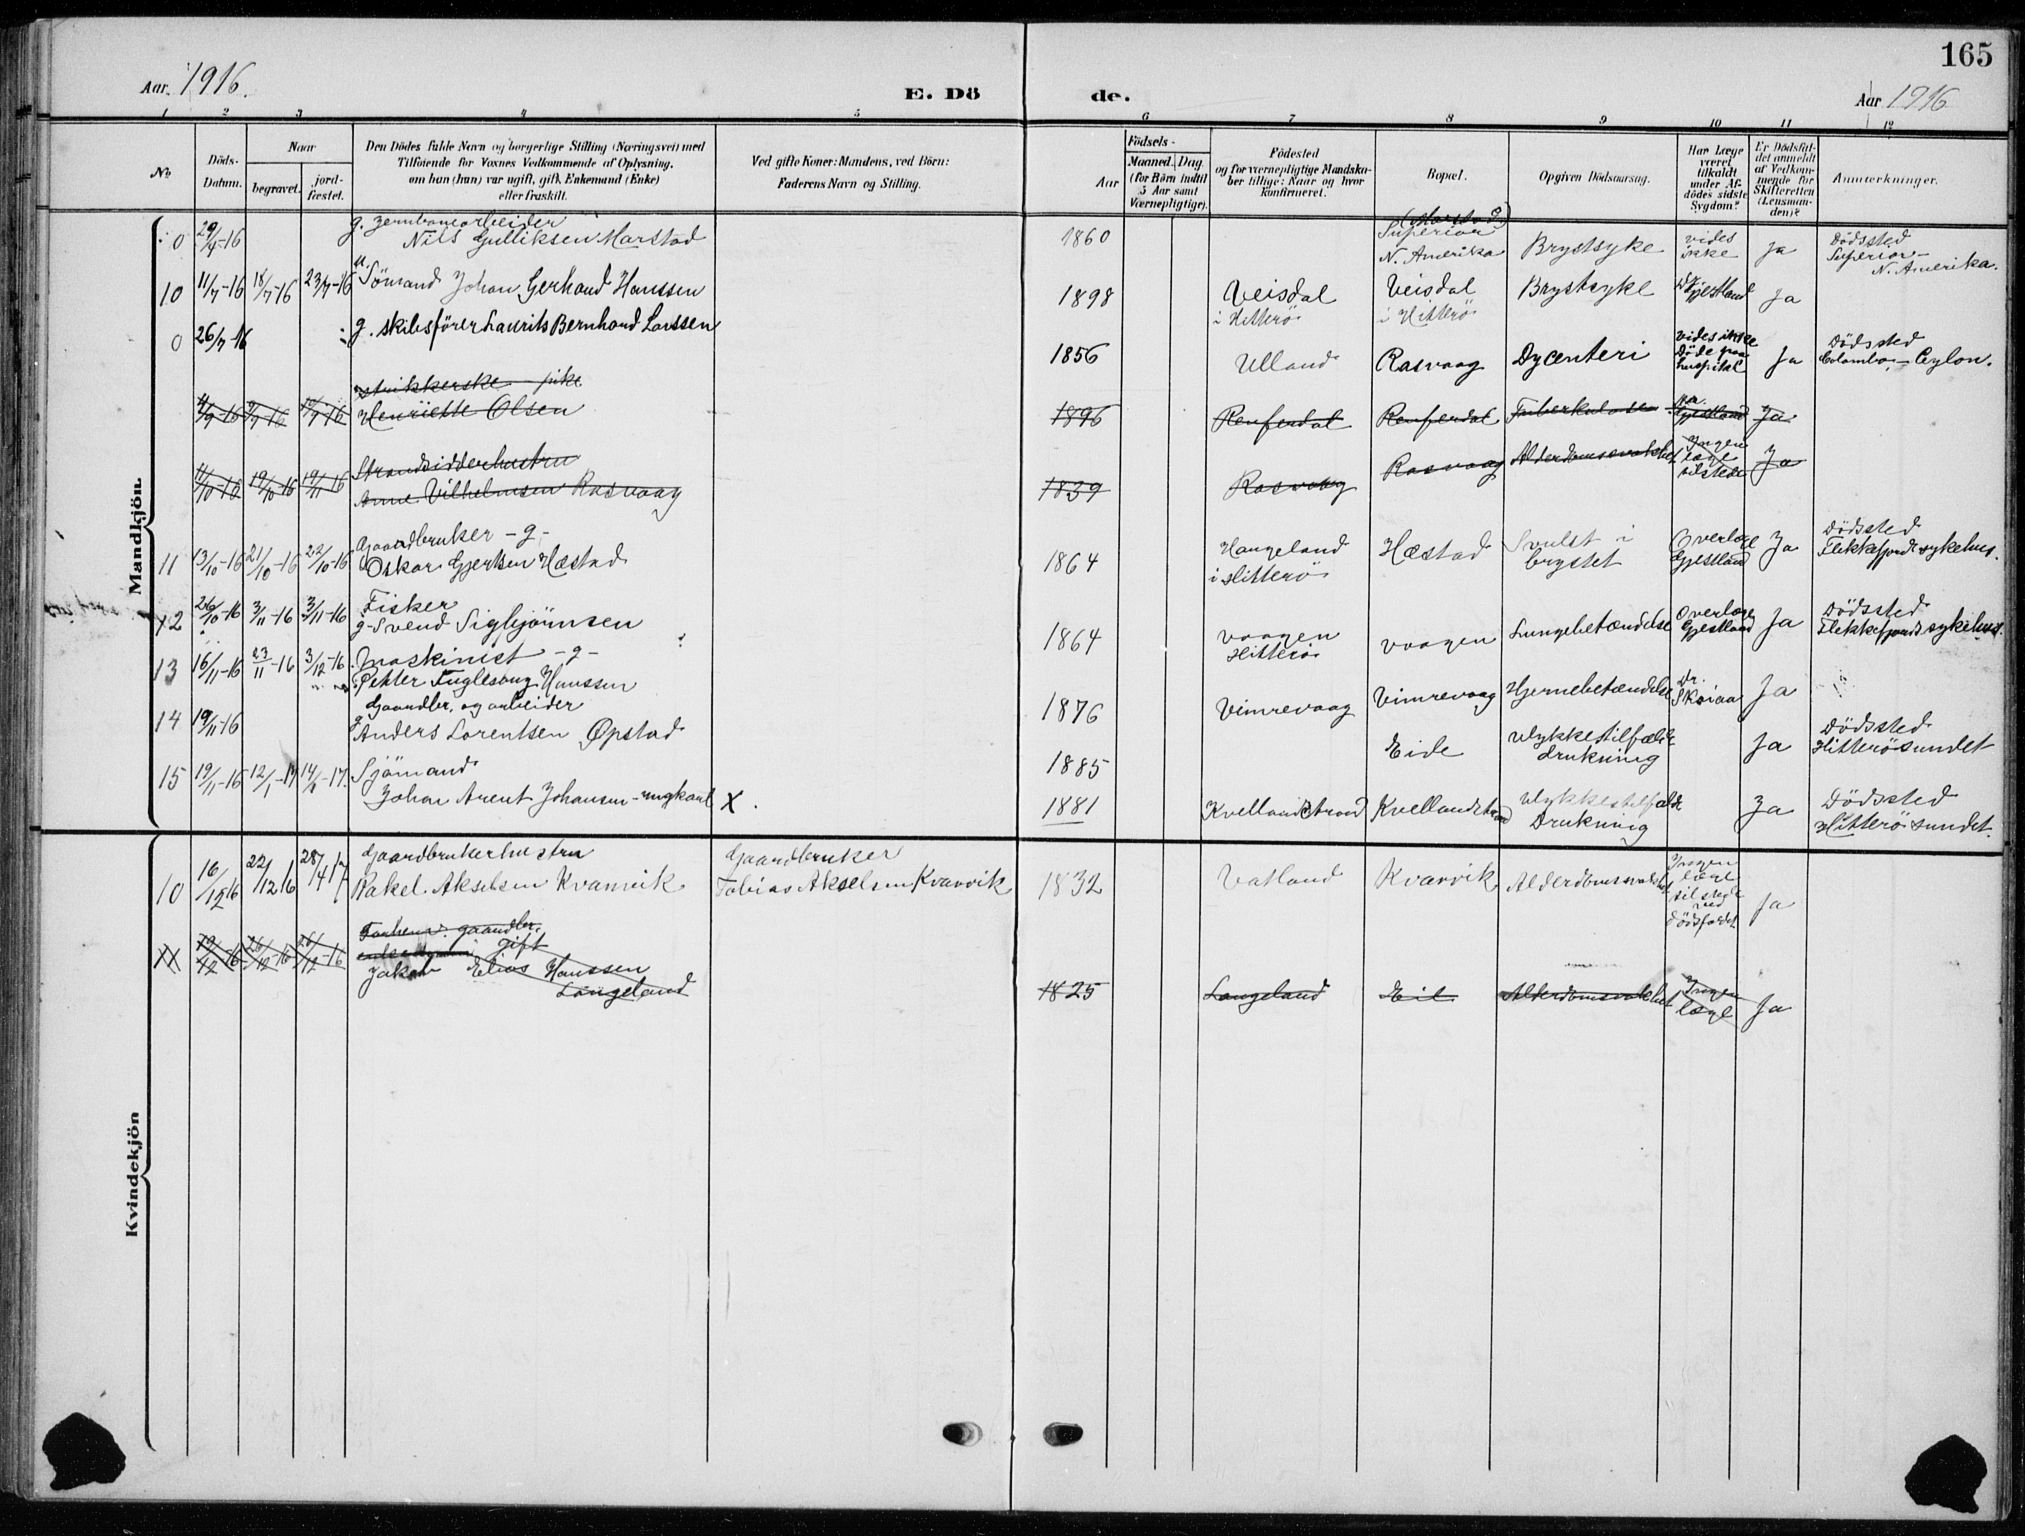 165
Aar 1916.
E. Dö
de.
Aar 1916
1 2 3 4 5 6 7 8 9 10 11 12
No
Döds-Datum.
Naar
begravet.
jord-fæstet.
Den Dödes fulde Navn og borgerlige Stilling (Næringsvei) med
Tilföiende for Voxnes Vedkommende af Oplysning,
om han (hun) var ugift, gift, Enkemand (Enke)
eller fraskilt.
Ved gifte Koner: Mandens, ved Börn:
Faderens Navn og Stilling.
Aar
Födsels-
Maaned. Dag.
(for Börn indtil
5 Aar samt
Værnepligtige).
Födested
og for værnepligtige Mandska-
ber tillige: Naar og hvor
konfirmeret.
Bopæl.
Opgiven Dödsaarsag.
Har Læge
været
tilkaldt
under Af-
dödes sidste
Sygdom?
Er Dödsfal-
det anmeldt
af Vedkom-
mende for
Skifteretten
(Lensman-
den)?
Anmærkninger.
Mandkjön.
0 29/4-16 g. Jernbanearbeider
Nils Gulliksen Marstad 1860 (Marstad)
Superior
N. Amerika Brystsyke vides
ikke Ja Dödssted
Superior-
N. Amerika.
10 11/7-16 18/7-16 23/7-16 u. Sömand Johan Gerhard Hanssen 1898 Veisdal
i Hitterö Veisdal
i Hitterö Brystsyke Dr. Gjestland Ja
0 26/7-16 g. skibsförer Laurits Bernhard Larssen 1856 Ulland Rasvaag Dycenteri vides ikke
Döde paa
hospital Ja Dödssted
Colombo - Ceylon.
strikkerske pike
Henriette Olsen 1896 Renferdal Renferdal Tuberkulose Gjestland Ja
Strandsidderhustru
Anne Vilhelmsen Rasvaag 1839 Rasvaag Rasvaag Alderdomssvakhet Ingen
læge
tilstede Ja
11 13/10-16 21/10-16 22/10-16 Gaardbruker -g-
Oskar Gjertsen Hæstad 1864 Haugeland
i Hitterö Hæstad Svulst i
brystet Overlæge
Gjestland Ja Dödssted
Flekkefjords sykehus.
12 26/10-16 3/11-16 3/11-16 Fisker
g- Svend Sigbjörnsen 1864 Vaagen
Hitterö Vaagen Lungebetændelse Overlæge
Gjestland Ja Dödssted
Flekkefjords sykehus.
13 16/11-16 23/11-16 3/12-16 Maskinist -g-
Petter Fuglesang Hanssen 1876 Vimrevaag Vimrevaag Hjernebetændelse Dr. Ja
14 19/11-16 Gaardbr. og arbeider
g Anders Lorentsen Opstad 1885 Eide Ulykkestilfælde
drukning Ja Dödssted
Hitterösundet
15 19/11-16 12/1-17 Sjömand
Johan Arent Johansen - ungkarl X. 1881 Kvellandstrand Kvellandstrand Ulykkestilfælde
Drukning Ja Dödssted
Hitterösundet.
Kvindekjön
10 16/12 16 22/12 16 28/4 17 Gaardbrukerhustru
Rakel Akselsen Kvanvik Gaardbruker
Tobias Akselsen Kvanvik 1832 Vatland Kvanvik Alderdomssvakhet Ingen
læge
tilstede
ved
dödsfaldet Ja
26/12-16 Forhenv. gaardbr.
gift
Jakob Elias Hanssen
Langeland 1825 Langeland Eie Alderdomssvakhet Ingen
læge Ja